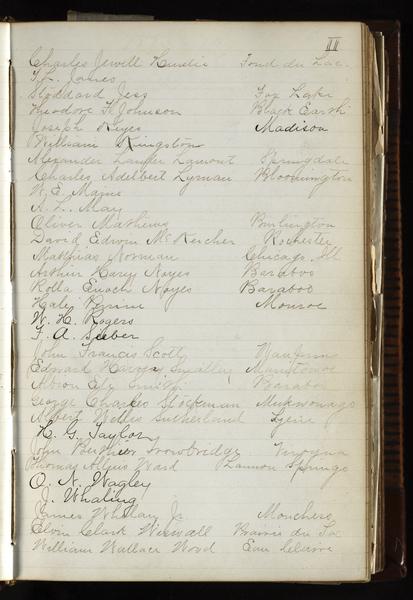 II
Charles Jewell Fond du Lac.
T. L. James
Stoddard Jess Fox Lake
Theodore F. Johnson Black Earth
Joseph Keyes Madison
William Kingston
Alexander Lander Lamont Springdale
Charles Adelbert Lyman Bloomington
W. E. Maine
A. L. May
Oliver Mathews Burlington
David Edwin McKercher Rochester
Matthias Norman Chicago, Ill
Arthur Harry Noyes Baraboo
Rolla Enoch Noyes Baraboo
Hale Monroe
W. H. Rogers
F. A. Sieber
John Francis Scott
Edward Harvey Smalley Manitowoc
Albion Ely Smith Baraboo
George Charles Stockman Mukwonago
Albert Willis Sutherland
H. G. Taylor
John Trowbridge Viroqua
Thomas Ward Lannon Springs
O. N. Wagley
J. Whaling
James Whelan Jr
Elvin Clark Wiswall Prairie du Sac
William Wallace Wood Eau Claire